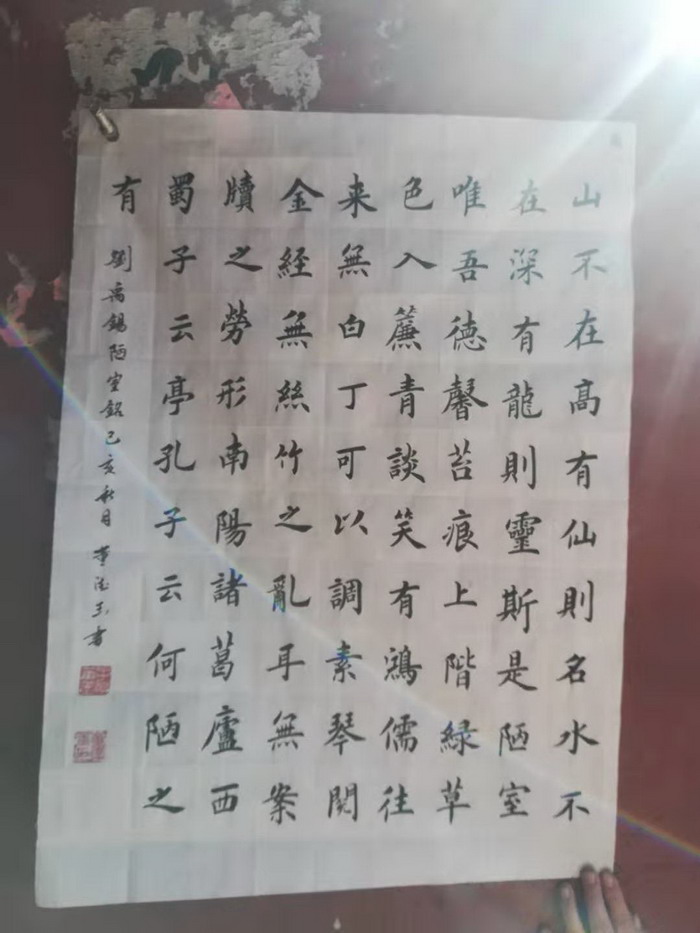 山不在高有仙則名水不
在深有龍則靈斯是陋室
唯吾德馨苔痕上階緑草
色入簾青談笑有鴻儒往
来無白丁可以調素琴閱
金經無絲竹之亂耳無案
牘之勞形南陽諸葛廬西
蜀子云亭孔子云何陋之
有
劉禹錫陋室銘己亥秋月